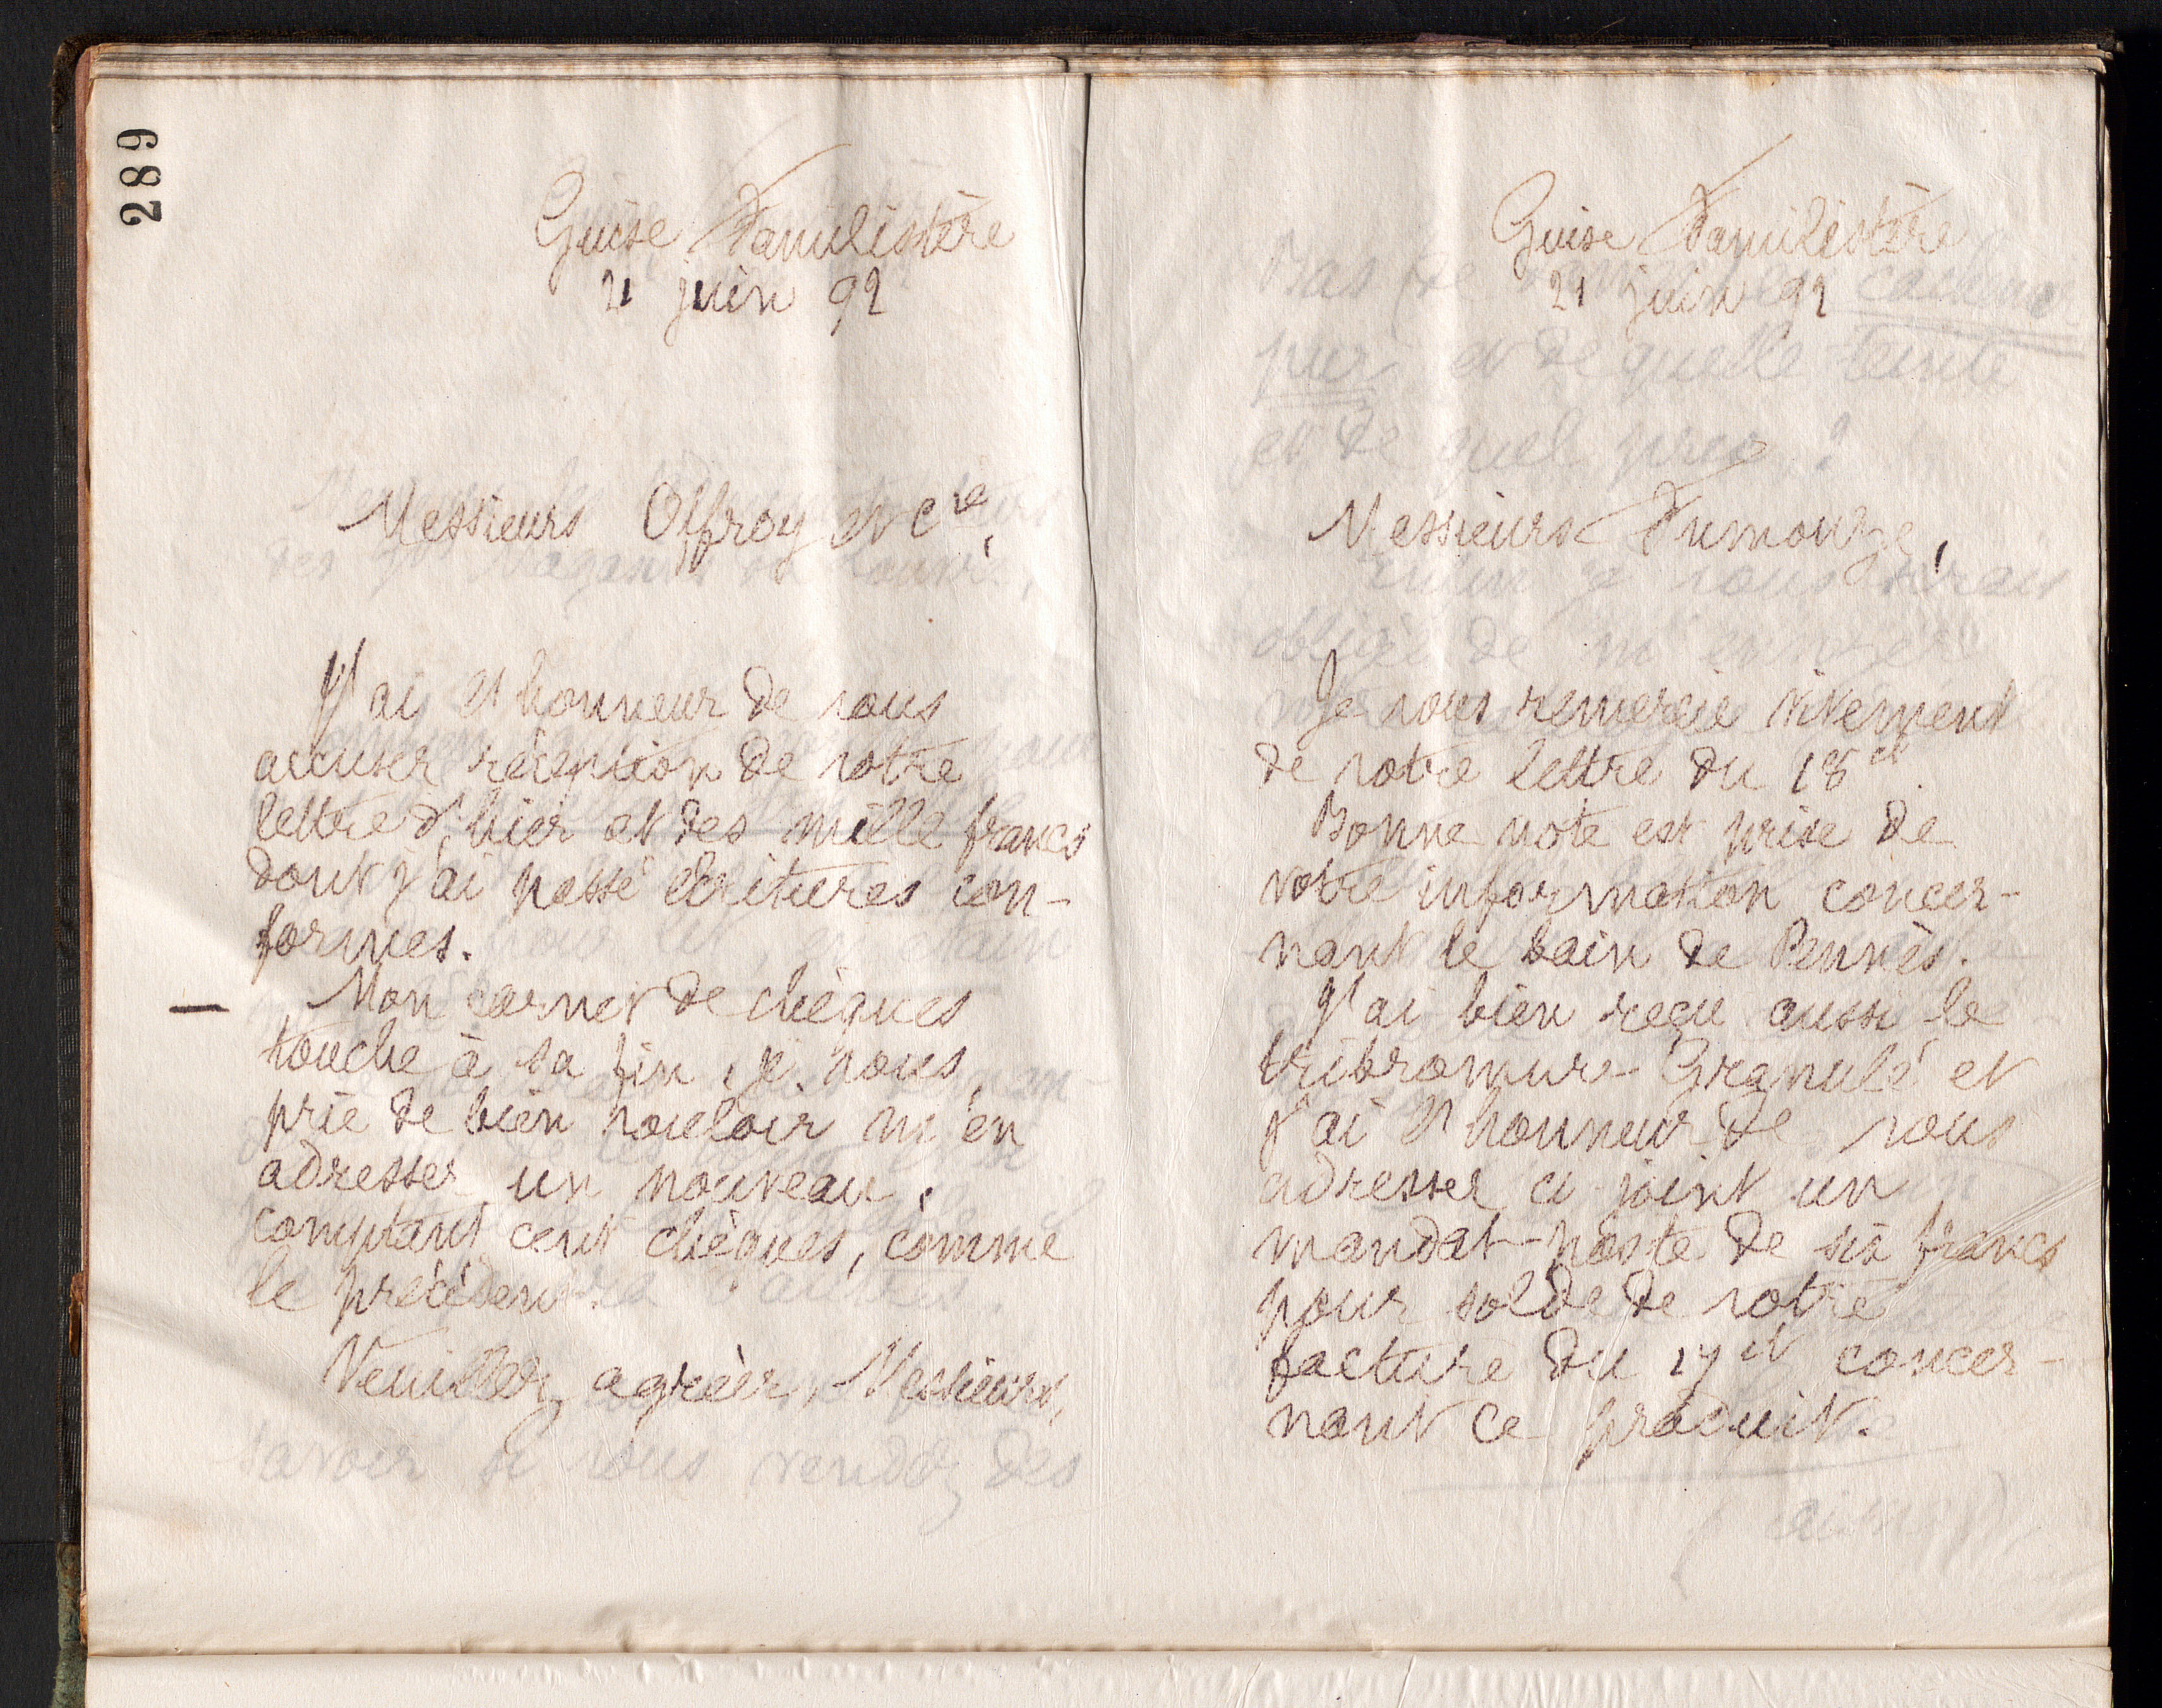 289
Guise Familistère
21 juin 92
Messieurs Offroy et Cie,
J'ai l'honneur de vous
accuser réception de votre
lettre d'hier et des mille francs
dont j'ai passé écritures con-
formes.
Mon carnet de chèques
touche à sa fin, je vous
prie de bien vouloir m'en
adresser un nouveau,
comptant cent chèques, comme
le précédent.
Veuillez agréer, Messieurs,
Guise Familistère
21 juin 92
Messieurs Fumouze,
Je vous remercie vivement
de votre lettre du 18 ct.
Bonne note est prise de
votre information concer-
nant le bain de Pennès.
J'ai bien reçu aussi le
tribromure Granulé et
j'ai l'honneur de vous
adresser ci-joint un
mandat-poste de six francs
pour solde de votre
facture du 17 ct concer-
nant ce produit.